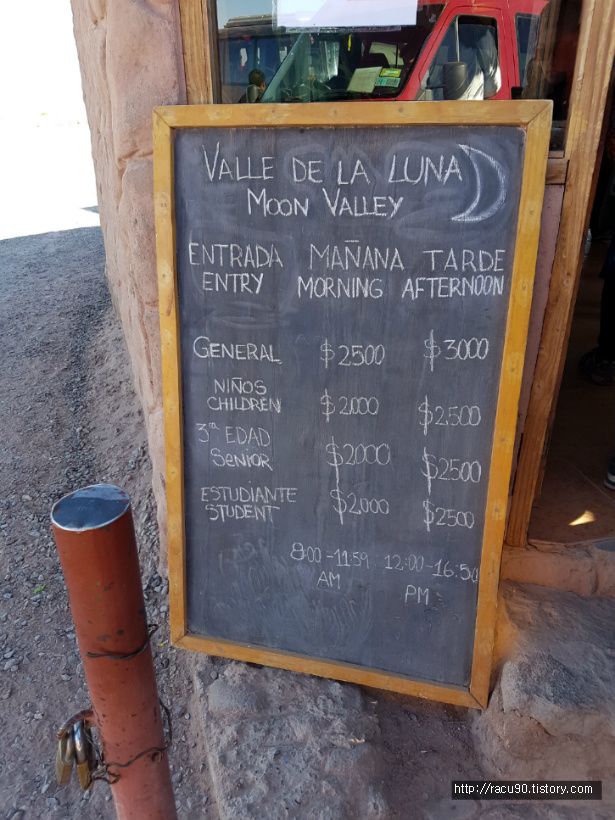 VALLE DE LA LUNA
MOON VALLEY
ENTRADA MAÑANA TARDE
ENTRY MORNING AFTERNOON
GENERAL $2500 $3000
NIÑOS
CHILDREN $2,000 $2,500
3ra EDAD
SENIOR $2000 $2500
ESTUDIANTE
STUDENT $2,000 $2500
8:00-11:59 12:00-16:50
AM PM
http://racu90.tistory.com